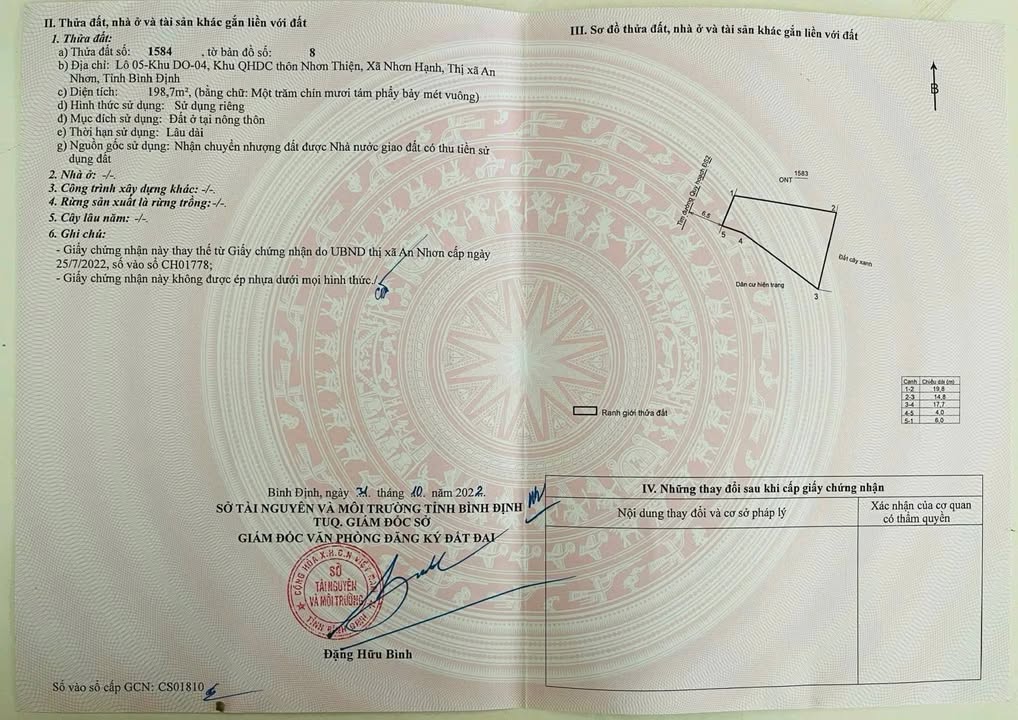 II. Thửa đất, nhà ở và tài sản khác gắn liền với đất
1. Thửa đất:
a) Thửa đất số: 1584 , tờ bản đồ số: 8
b) Địa chỉ: Lô 05-Khu DO-04, Khu QHDC thôn Nhơn Thiện, Xã Nhơn Hạnh, Thị xã An
Nhơn, Tỉnh Bình Định
c) Diện tích: 198,7m², (bằng chữ: Một trăm chín mươi tám phẩy bảy mét vuông)
d) Hình thức sử dụng: Sử dụng riêng
đ) Mục đích sử dụng: Đất ở tại nông thôn
e) Thời hạn sử dụng: Lâu dài
g) Nguồn gốc sử dụng: Nhận chuyển nhượng đất được Nhà nước giao đất có thu tiền sử
dụng đất
2. Nhà ở: -/-.
3. Công trình xây dựng khác: -/-.
4. Rừng sản xuất là rừng trồng:-/-.
5. Cây lâu năm: -/-.
6. Ghi chú:
- Giấy chứng nhận này thay thế từ Giấy chứng nhận do UBND thị xã An Nhơn cấp ngày
25/7/2022, số vào sổ CH01778;
- Giấy chứng nhận này không được ép nhựa dưới mọi hình thức./.
Bình Định, ngày 31 tháng 10 năm 2022.
SỞ TÀI NGUYÊN VÀ MÔI TRƯỜNG TỈNH BÌNH ĐỊNH
TUQ. GIÁM ĐỐC SỞ
GIÁM ĐỐC VĂN PHÒNG ĐĂNG KÝ ĐẤT ĐAI
CỘNG HÒA X.H.C.N VIỆT NAM
SỞ
TÀI NGUYÊN
VÀ MÔI TRƯỜNG
TỈNH BÌNH ĐỊNH
Đặng Hữu Bình
Số vào sổ cấp GCN: CS01810
III. Sơ đồ thửa đất, nhà ở và tài sản khác gắn liền với đất
B
ONT 1583
Tim đường Quy hoạch ĐS2
6,5
1
2
3
4
5
Đất cây xanh
Dân cư hiện trạng
Cạnh Chiều dài (m)
1-2 19,8
2-3 14,8
3-4 17,7
4-5 4,0
5-1 6,0
Ranh giới thửa đất
IV. Những thay đổi sau khi cấp giấy chứng nhận
Nội dung thay đổi và cơ sở pháp lý
Xác nhận của cơ quan
có thẩm quyền